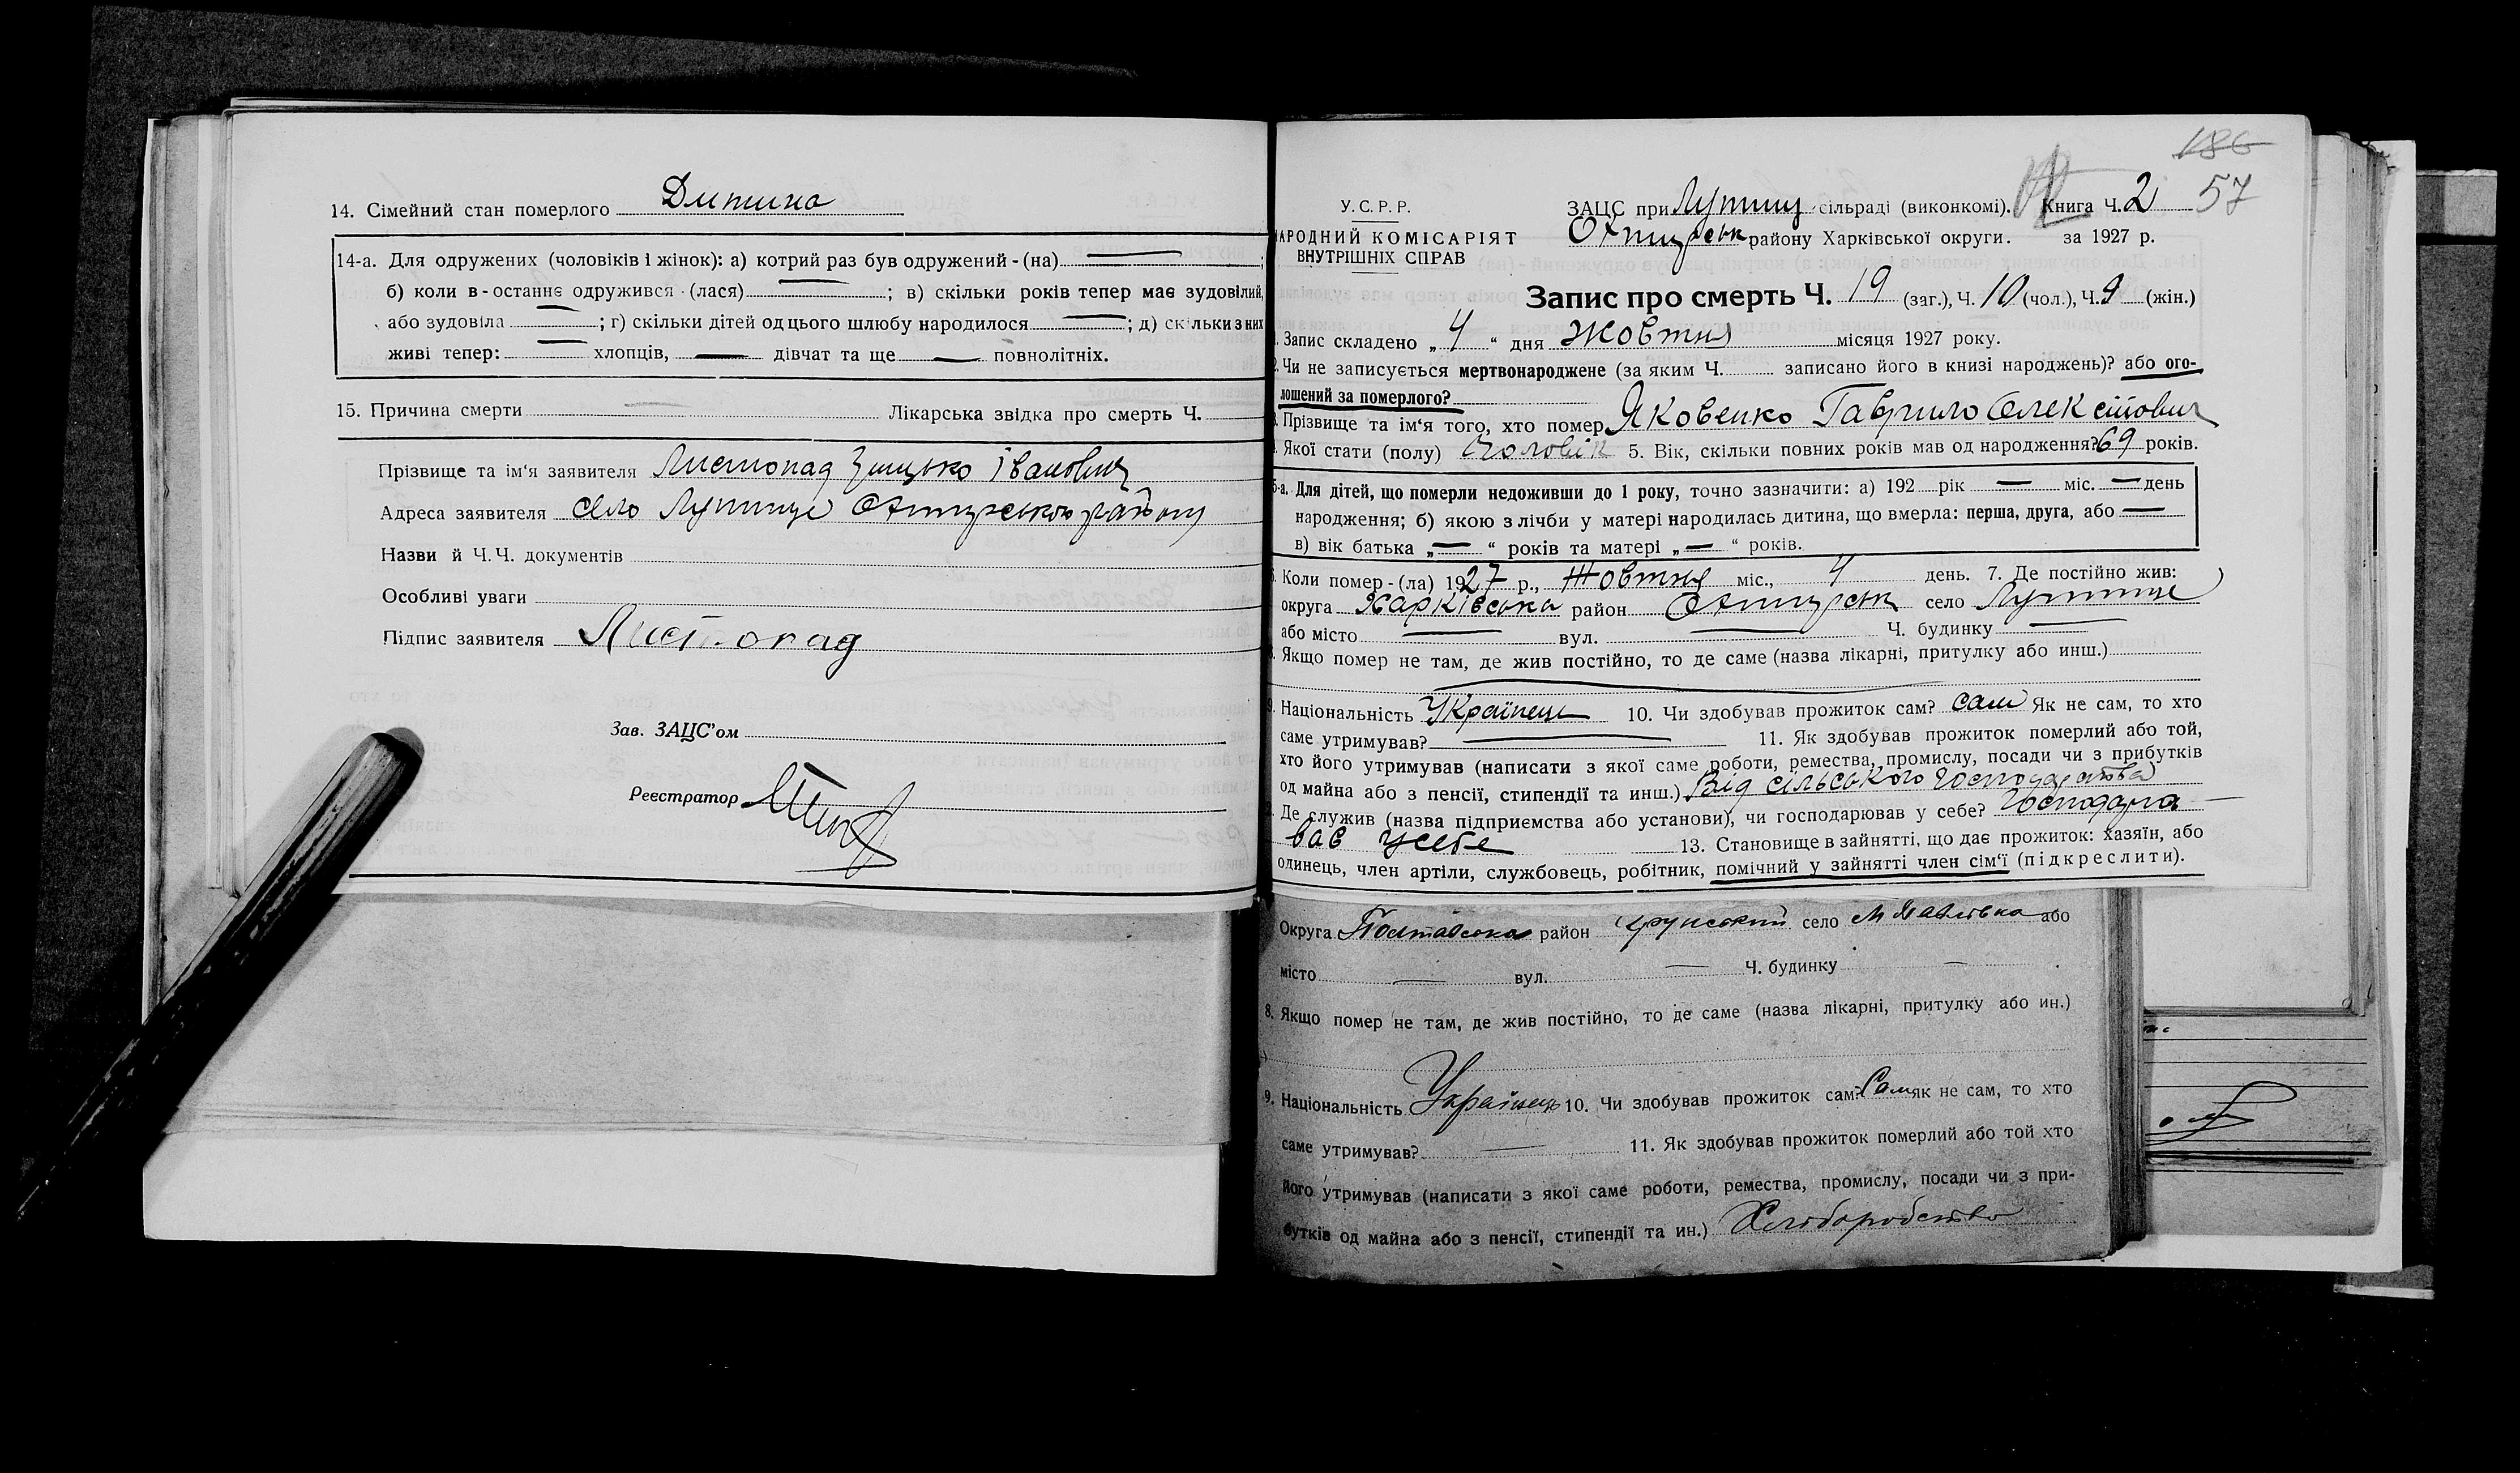 14. Сімейний стан померлого Дитина
14-а. Для одружених (чоловіків і жінок): а) котрий раз був одружений - (на) — ;
б) коли в - останнє одружився - (лася) — ; в) скільки років тепер має зудовілий,
або зудовіла — ; г) скільки дітей од цього шлюбу народилося — ; д) скільки з них
живі тепер: — хлопців, — дівчат та ще — повнолітніх.
15. Причина смерти — Лікарська звідка про смерть Ч.
Прізвище та ім'я заявителя Листопад Грицько Іванович
Адреса заявителя село Лутище Охтирського району
Назви й Ч.Ч. документів
Особливі уваги
Підпис заявителя Листопад
Зав. ЗАЦС'ом
Реєстратор
186
57
У.С.Р.Р.
НАРОДНИЙ КОМІСАРІЯТ
ВНУТРІШНІХ СПРАВ
ЗАЦС при Лутищ сільраді (виконкомі). Книга Ч. 2
Охтирськ району Харківської округи. за 1927 р.
Запис про смерть Ч. 19 (заг.), Ч. 10 (чол.), Ч. 9 (жін.)
1. Запис складено „ 4 “ дня Жовтня місяця 1927 року.
2. Чи не записується мертвонароджене (за яким Ч. записано його в книзі народжень)? або ого-
лошений за померлого?
3. Прізвище та ім'я того, хто помер Яковенко Гаврило Олексійович
4. Якої стати (полу) Чоловік 5. Вік, скільки повних років мав од народження? 69 років.
5-а. Для дітей, що померли недоживши до 1 року, точно зазначити: а) 192 рік — міс. — день
народження; б) якою з лічби у матері народилась дитина, що вмерла: перша, друга, або —
в) вік батька „ — “ років та матері „ — “ років.
6. Коли помер - (ла) 1927 р., Жовтня міс., 4 день. 7. Де постійно жив:
округа Харківська район Охтирськ село Лутище
або місто — вул. — Ч. будинку —
8. Якщо помер не там, де жив постійно, то де саме (назва лікарні, притулку або инш.)
9. Національність Українець 10. Чи здобував прожиток сам? сам Як не сам, то хто
саме утримував? — 11. Як здобував прожиток померлий або той,
хто його утримував (написати з якої саме роботи, ремества, промислу, посади чи з прибутків
од майна або з пенсії, стипендії та инш.) Від сільського господарства
12. Де служив (назва підприємства або установи), чи господарював у себе? Господарю
вав усебе 13. Становище в зайнятті, що дає прожиток: хазяїн, або
одинець, член артіли, службовець, робітник, помічний у зайнятті член сім'ї (підкреслити).
Округа Полтавська район село або
місто — вул. — Ч. будинку —
8. Якщо помер не там, де жив постійно, то де саме (назва лікарні, притулку або ин.)
9. Національність Українець 10. Чи здобував прожиток сам? Сам як не сам, то хто
саме утримував? — 11. Як здобував прожиток померлий або той хто
його утримував (написати з якої саме роботи, ремества, промислу, посади чи з при-
бутків од майна або з пенсії, стипендії та ин.) Хліборобство